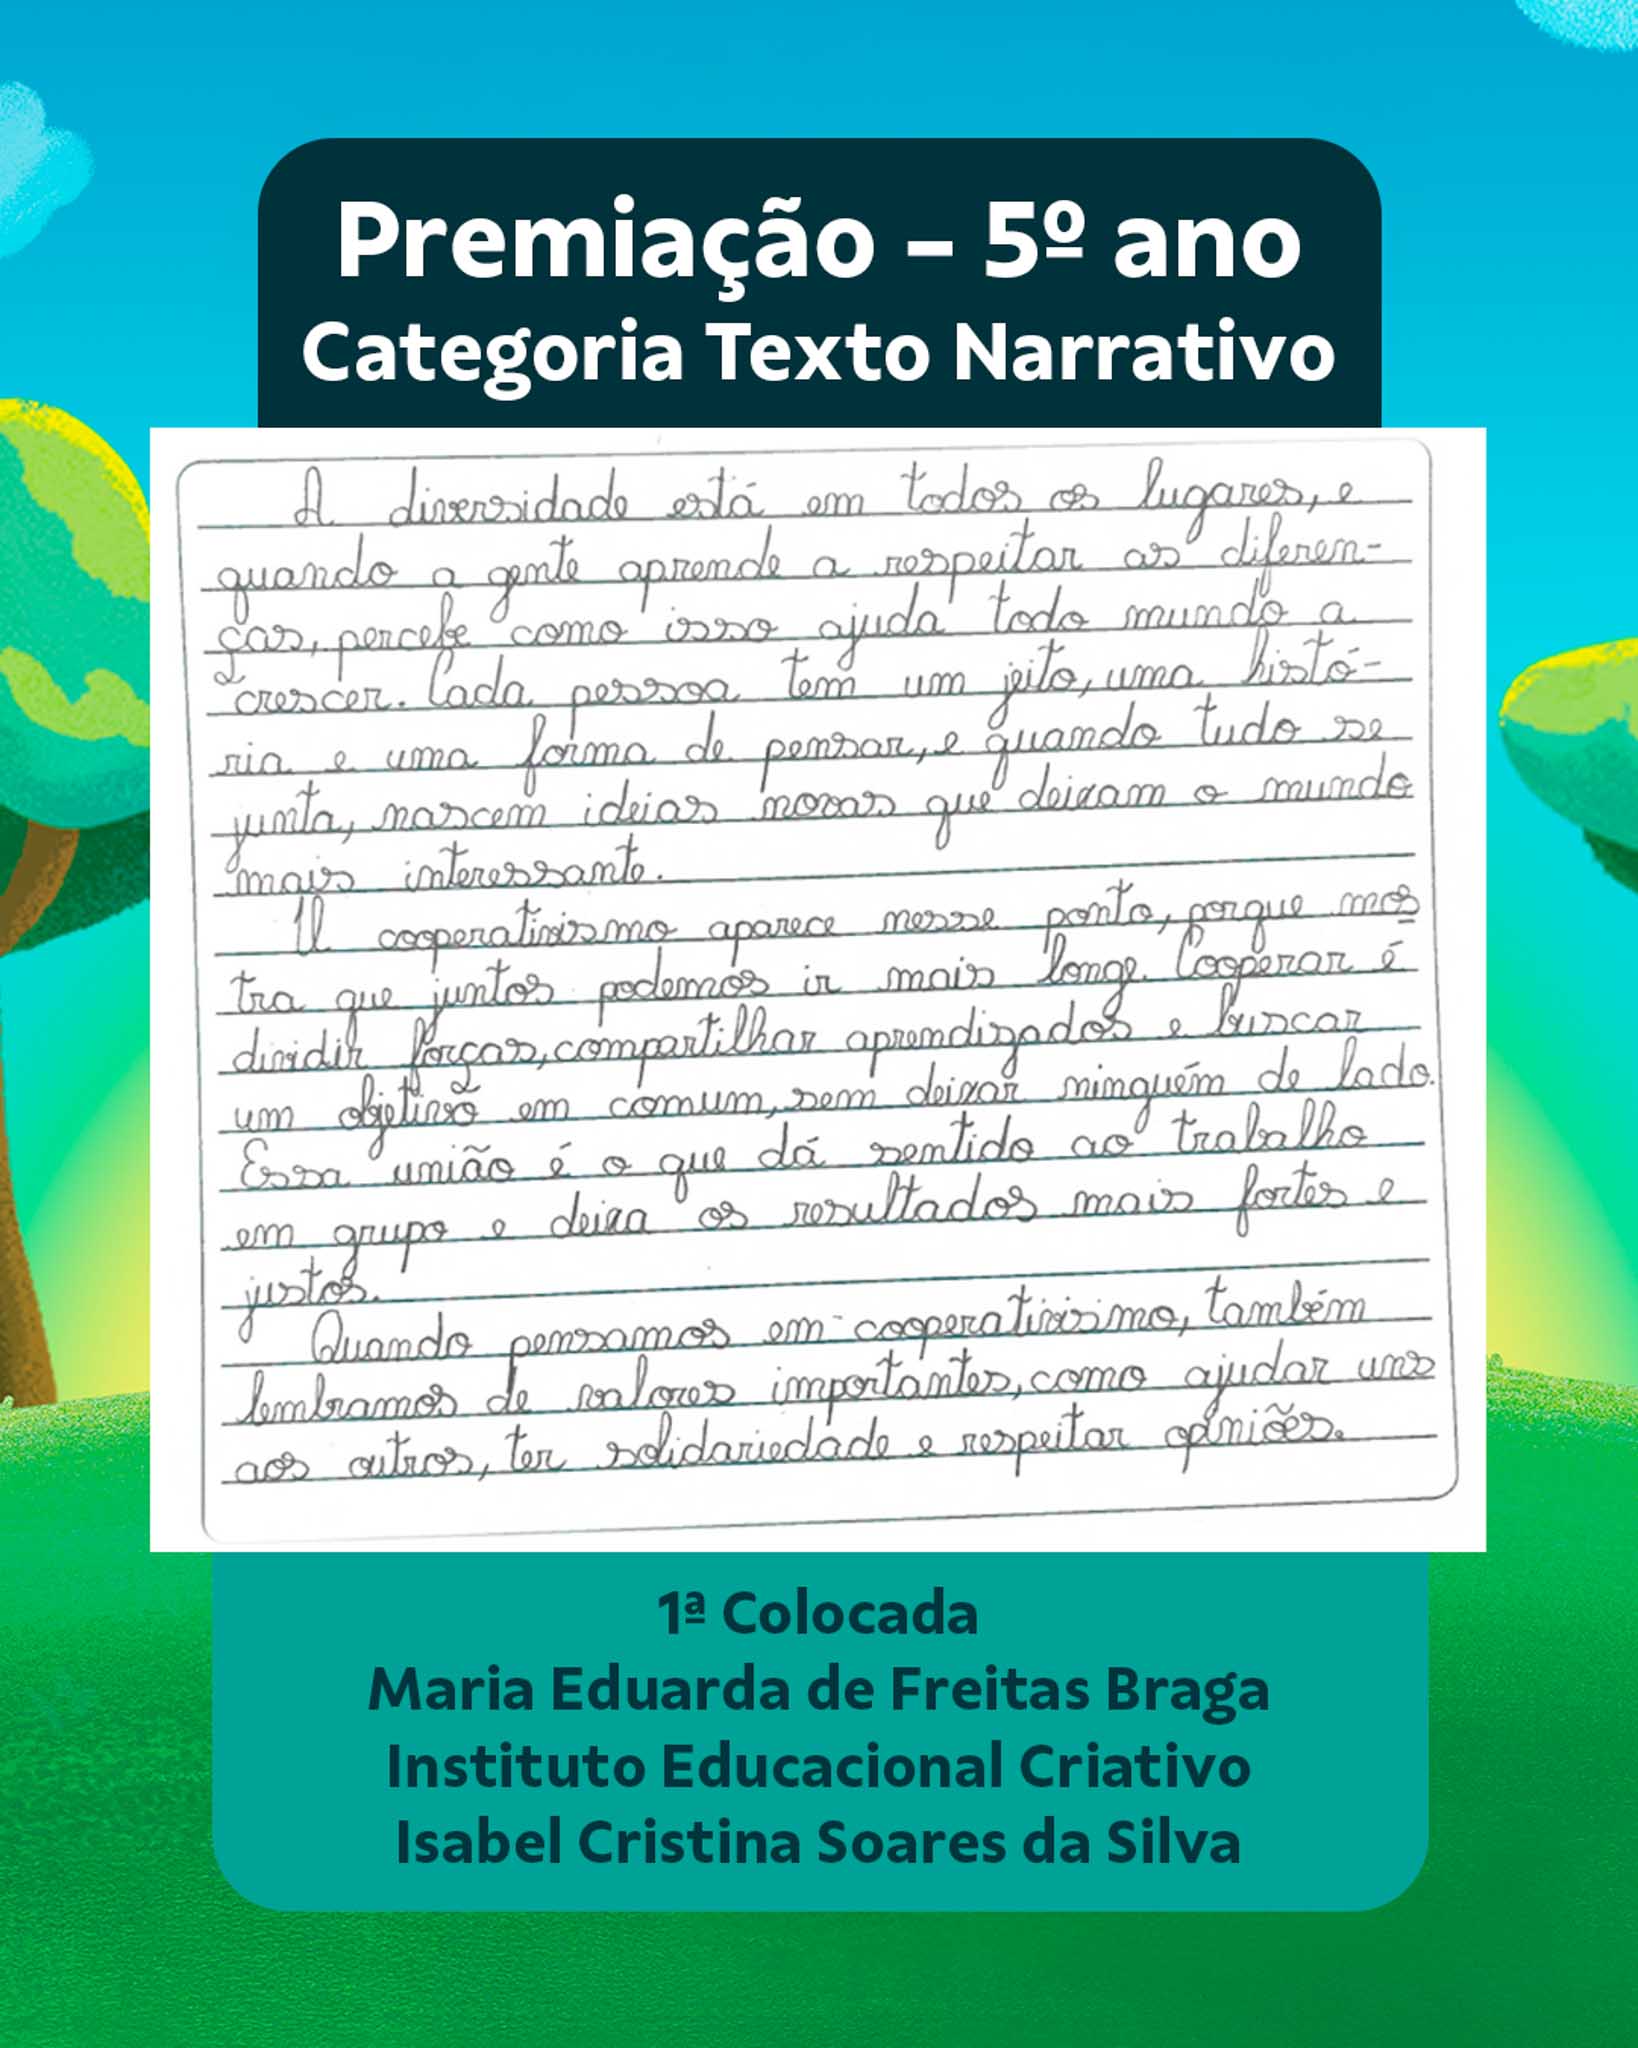 Premiação – 5º ano
Categoria Texto Narrativo
A diversidade está em todos os lugares, e
quando a gente aprende a respeitar as diferen-
ças, percebe como isso ajuda todo mundo a
crescer. Cada pessoa tem um jeito, uma histó-
ria e uma forma de pensar, e quando tudo se
junta, nascem ideias novas que deixam o mundo
mais interessante.
O cooperativismo aparece nesse ponto, porque mos
tra que juntos podemos ir mais longe. Cooperar é
dividir forças, compartilhar aprendizados e buscar
um objetivo em comum, sem deixar ninguém de lado.
Essa união é o que dá sentido ao trabalho
em grupo e deixa os resultados mais fortes e
justos.
Quando pensamos em cooperativismo, também
lembramos de valores importantes, como ajudar uns
aos outros, ter solidariedade e respeitar opiniões.
1ª Colocada
Maria Eduarda de Freitas Braga
Instituto Educacional Criativo
Isabel Cristina Soares da Silva